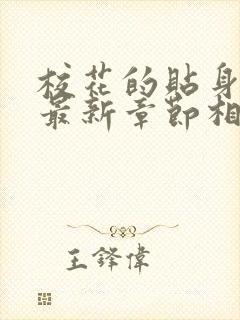 校花的貼身
最新章節相
王鋒偉